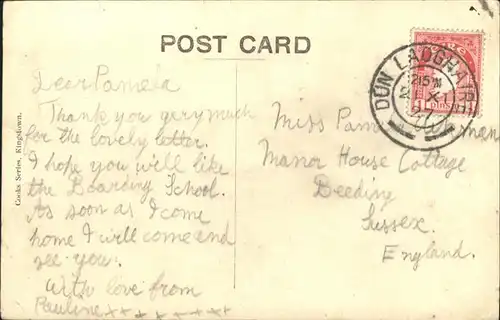 POST CARD
DÚN LAOGHAIRE
Dear Pamela
Thank you very much
for the lovely letter.
I hope you will like
the Boarding School.
As soon as I come
home I will come and
see you.
With love from
Pauline xx x x x x x x
Cooks Series, Kingstown.
Miss Pam man
Manor House Cottage
Beeding
Sussex.
England.